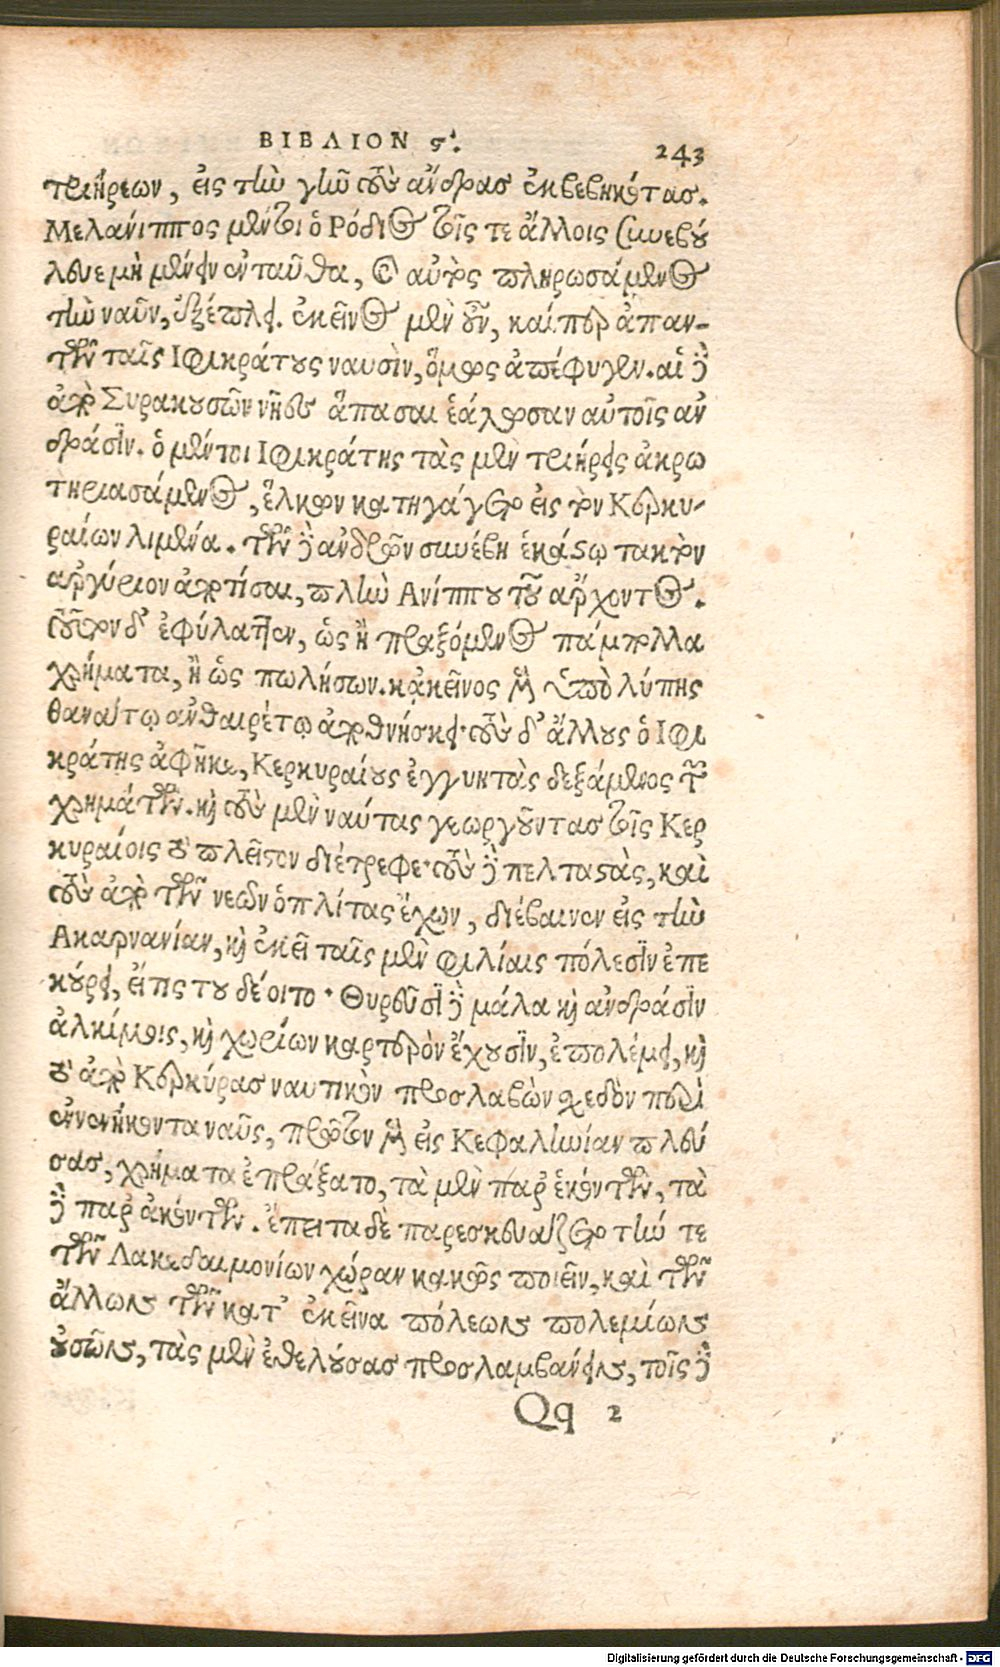 ΒΙΒΛΙΟΝ ϛʹ. 243
τριήρεων, εἰς τὴν γῆν τοὺς ἄνδρας ἐκβεβηκότας.
Μελάνιππος μέντοι ὁ Ρόδιος τοῖς τε ἄλλοις συνεβού
λευε μὴ μένειν ἐνταῦθα, καὶ αὐτὸς πληρωσάμενος
τὴν ναῦν, ἐξέπλει. ἐκεῖνος μὲν οὖν, καίπερ ἀπαν-
τῶν ταῖς Ιφικράτους ναυσὶν, ὅμως ἀπέφυγεν. αἱ δὲ
ἀπὸ Συρακουσῶν νῆες ἅπασαι ἑάλωσαν αὐτοῖς ἀν
δράσιν. ὁ μέντοι Ιφικράτης τὰς μὲν τριήρεις ἀκρω
τηριασάμενος, ἕλκων κατηγάγετο εἰς τὸν Κερκυ-
ραίων λιμένα. τῶν δὲ ἀνδρῶν συνέβη ἑκάστῳ τακτὸν
ἀργύριον ἀποτίσαι, πλὴν Ανίππου τοῦ ἄρχοντος.
τοῦτον δ' ἐφύλαττεν, ὡς ἢ πραξόμενος πάμπολλα
χρήματα, ἢ ὡς πωλήσων. κἀκεῖνος μὲν ὑπὸ λύπης
θανάτῳ αὐθαιρέτῳ ἀποθνήσκει· τοὺς δ' ἄλλους ὁ Ιφι
κράτης ἀφῆκε, Κερκυραίους ἐγγυητὰς δεξάμενος τῶν
χρημάτων. καὶ τοὺς μὲν ναύτας γεωργοῦντας τοῖς Κερ
κυραίοις τὸ πλεῖστον διέτρεφε· τοὺς δὲ πελταστὰς, καὶ
τοὺς ἀπὸ τῶν νεῶν ὁπλίτας ἔχων, διέβαινεν εἰς τὴν
Ακαρνανίαν, καὶ ἐκεῖ ταῖς μὲν φιλίαις πόλεσιν ἐπε
κούρει, εἴ τίς του δέοιτο· Θυρεῦσι δὲ μάλα καὶ ἀνδράσιν
ἀλκίμοις, καὶ χωρίων καρτερὸν ἔχουσιν, ἐπολέμει, καὶ
τὸ ἀπὸ Κερκύρας ναυτικὸν προσλαβὼν σχεδὸν περὶ
ἐννενήκοντα ναῦς, πρῶτον μὲν εἰς Κεφαλληνίαν πλεύ
σας, χρήματα ἐπράξατο, τὰ μὲν παρ' ἑκόντων, τὰ
δὲ παρ' ἀκόντων. ἔπειτα δὲ παρεσκευάζετο τήν τε
τῶν Λακεδαιμονίων χώραν κακῶς ποιεῖν, καὶ τῶν
ἄλλων τῶν κατ' ἐκεῖνα πόλεων πολεμίων
οὐσῶν, τὰς μὲν ἐθελούσας προσλαμβάνειν, τοῖς δὲ
Qq 2
Digitalisierung gefördert durch die Deutsche Forschungsgemeinschaft - DFG